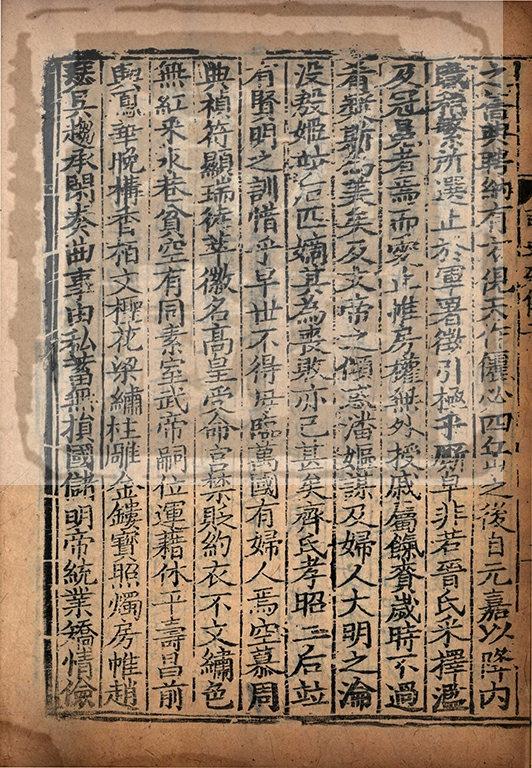 之舊典聘納有方俔天作儷必四岳之後自元嘉以降内
職稍繁所選止於軍署徵引極乎厮皁非若晉氏采擇濫
及冠冕者焉而愛止帷房權無外授戚屬餼賚歲時不過
肴漿斯爲美矣及文帝之傾惑潘嫗謀及婦人大明之淪
没殷姬竝后匹嫡其爲喪敗亦已甚矣齊氏孝昭二后竝
有賢明之訓惜乎早世不得母臨萬國有婦人焉空慕周
典禎符顯瑞徒萃徽名高皇受命宫禁貶約衣不文繡色
無紅采永巷貧空有同素室武帝嗣位運藉休平壽昌前
興鳳華晚構香栢文檉花梁繡柱雕金鏤寶照燭房帷趙
瑟吴趨承閑奏曲事由私蓄無損國儲明帝統業矯情儉